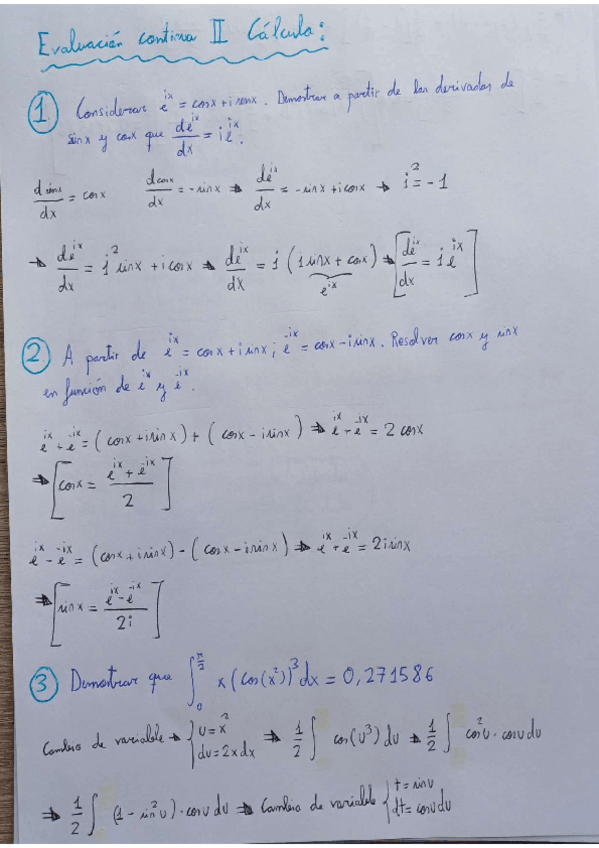 Evaluación continua II Cálculo:
① Considerar e^{ix} = cosx + i senx. Demostrar a partir de las derivadas de
sinx y cosx que de^{ix}/dx = i e^{ix}.
d sinx/dx = cosx   d cosx/dx = -sinx ⇒ de^{ix}/dx = -sinx + i cosx ⇒ i² = -1
⇒ de^{ix}/dx = i² sinx + i cosx ⇒ de^{ix}/dx = i (i sinx + cosx) ⇒ [de^{ix}/dx = i e^{ix}]
e^{ix}
② A partir de e^{ix} = cosx + i sinx ; e^{-ix} = cosx - i sinx. Resolver cosx y sinx
en función de e^{ix} y e^{-ix}.
e^{ix} + e^{-ix} = (cosx + i sinx) + (cosx - i sinx) ⇒ e^{ix} + e^{-ix} = 2 cosx
⇒ [cosx = (e^{ix} + e^{-ix})/2]
e^{ix} - e^{-ix} = (cosx + i sinx) - (cosx - i sinx) ⇒ e^{ix} + e^{-ix} = 2i sinx
⇒ [sinx = (e^{ix} - e^{-ix})/2i]
③ Demostrar que ∫_0^{π/2} x (cos(x²))³ dx = 0,271586
Cambio de variable → { u = x² du = 2x dx ⇒ 1/2 ∫ cos(u³) du ⇒ 1/2 ∫ cos²u · cosu du
⇒ 1/2 ∫ (1 - sin²u) · cosu du ⇒ Cambio de variable { t = sinu dt = cosu du